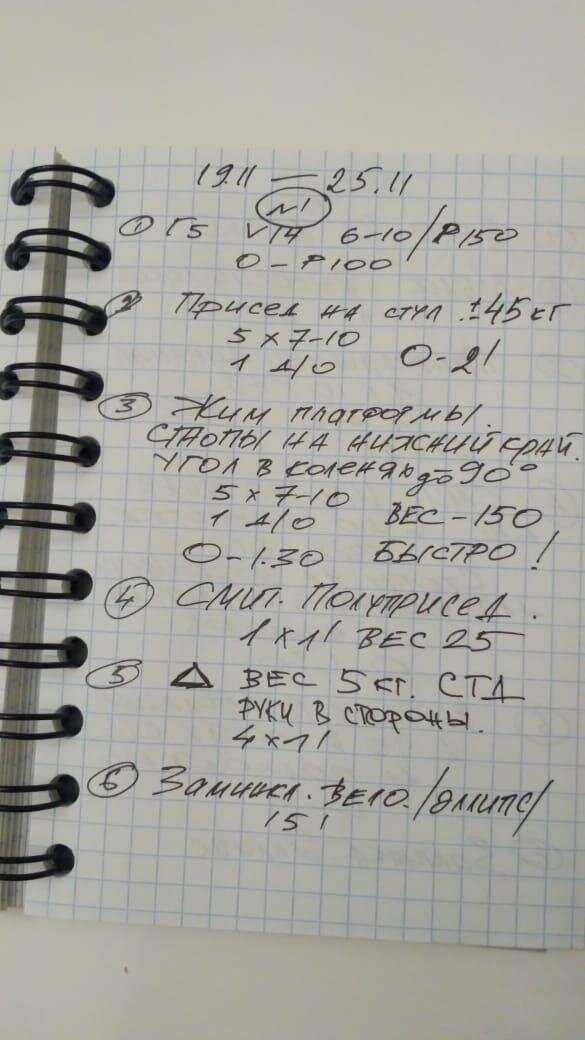 19.11 — 25.11
№1
① Г5 V14 6-10/P150
О - P100
② Присед на стул ±45кг
5 х 7-10
1 д/о О - 2'
③ Жим платформы.
СТОПЫ НА НИЖНИЙ КРАЙ.
УГОЛ В КОЛЕНЯХ до 90°
5 х 7-10
1 д/о ВЕС - 150
О - 1.30 БЫСТРО!
④ СМИТ. Полуприсед.
1 х 1' ВЕС 25
⑤ △ ВЕС 5кг. СТД
РУКИ В СТОРОНЫ.
4 х 1'
⑥ Заминка. Вело. /эллипс/
15'